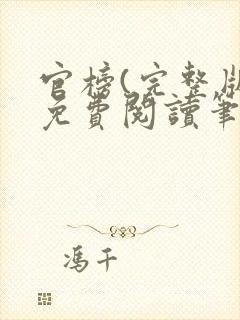 官榜(完整版
免費閱讀筆
馮千